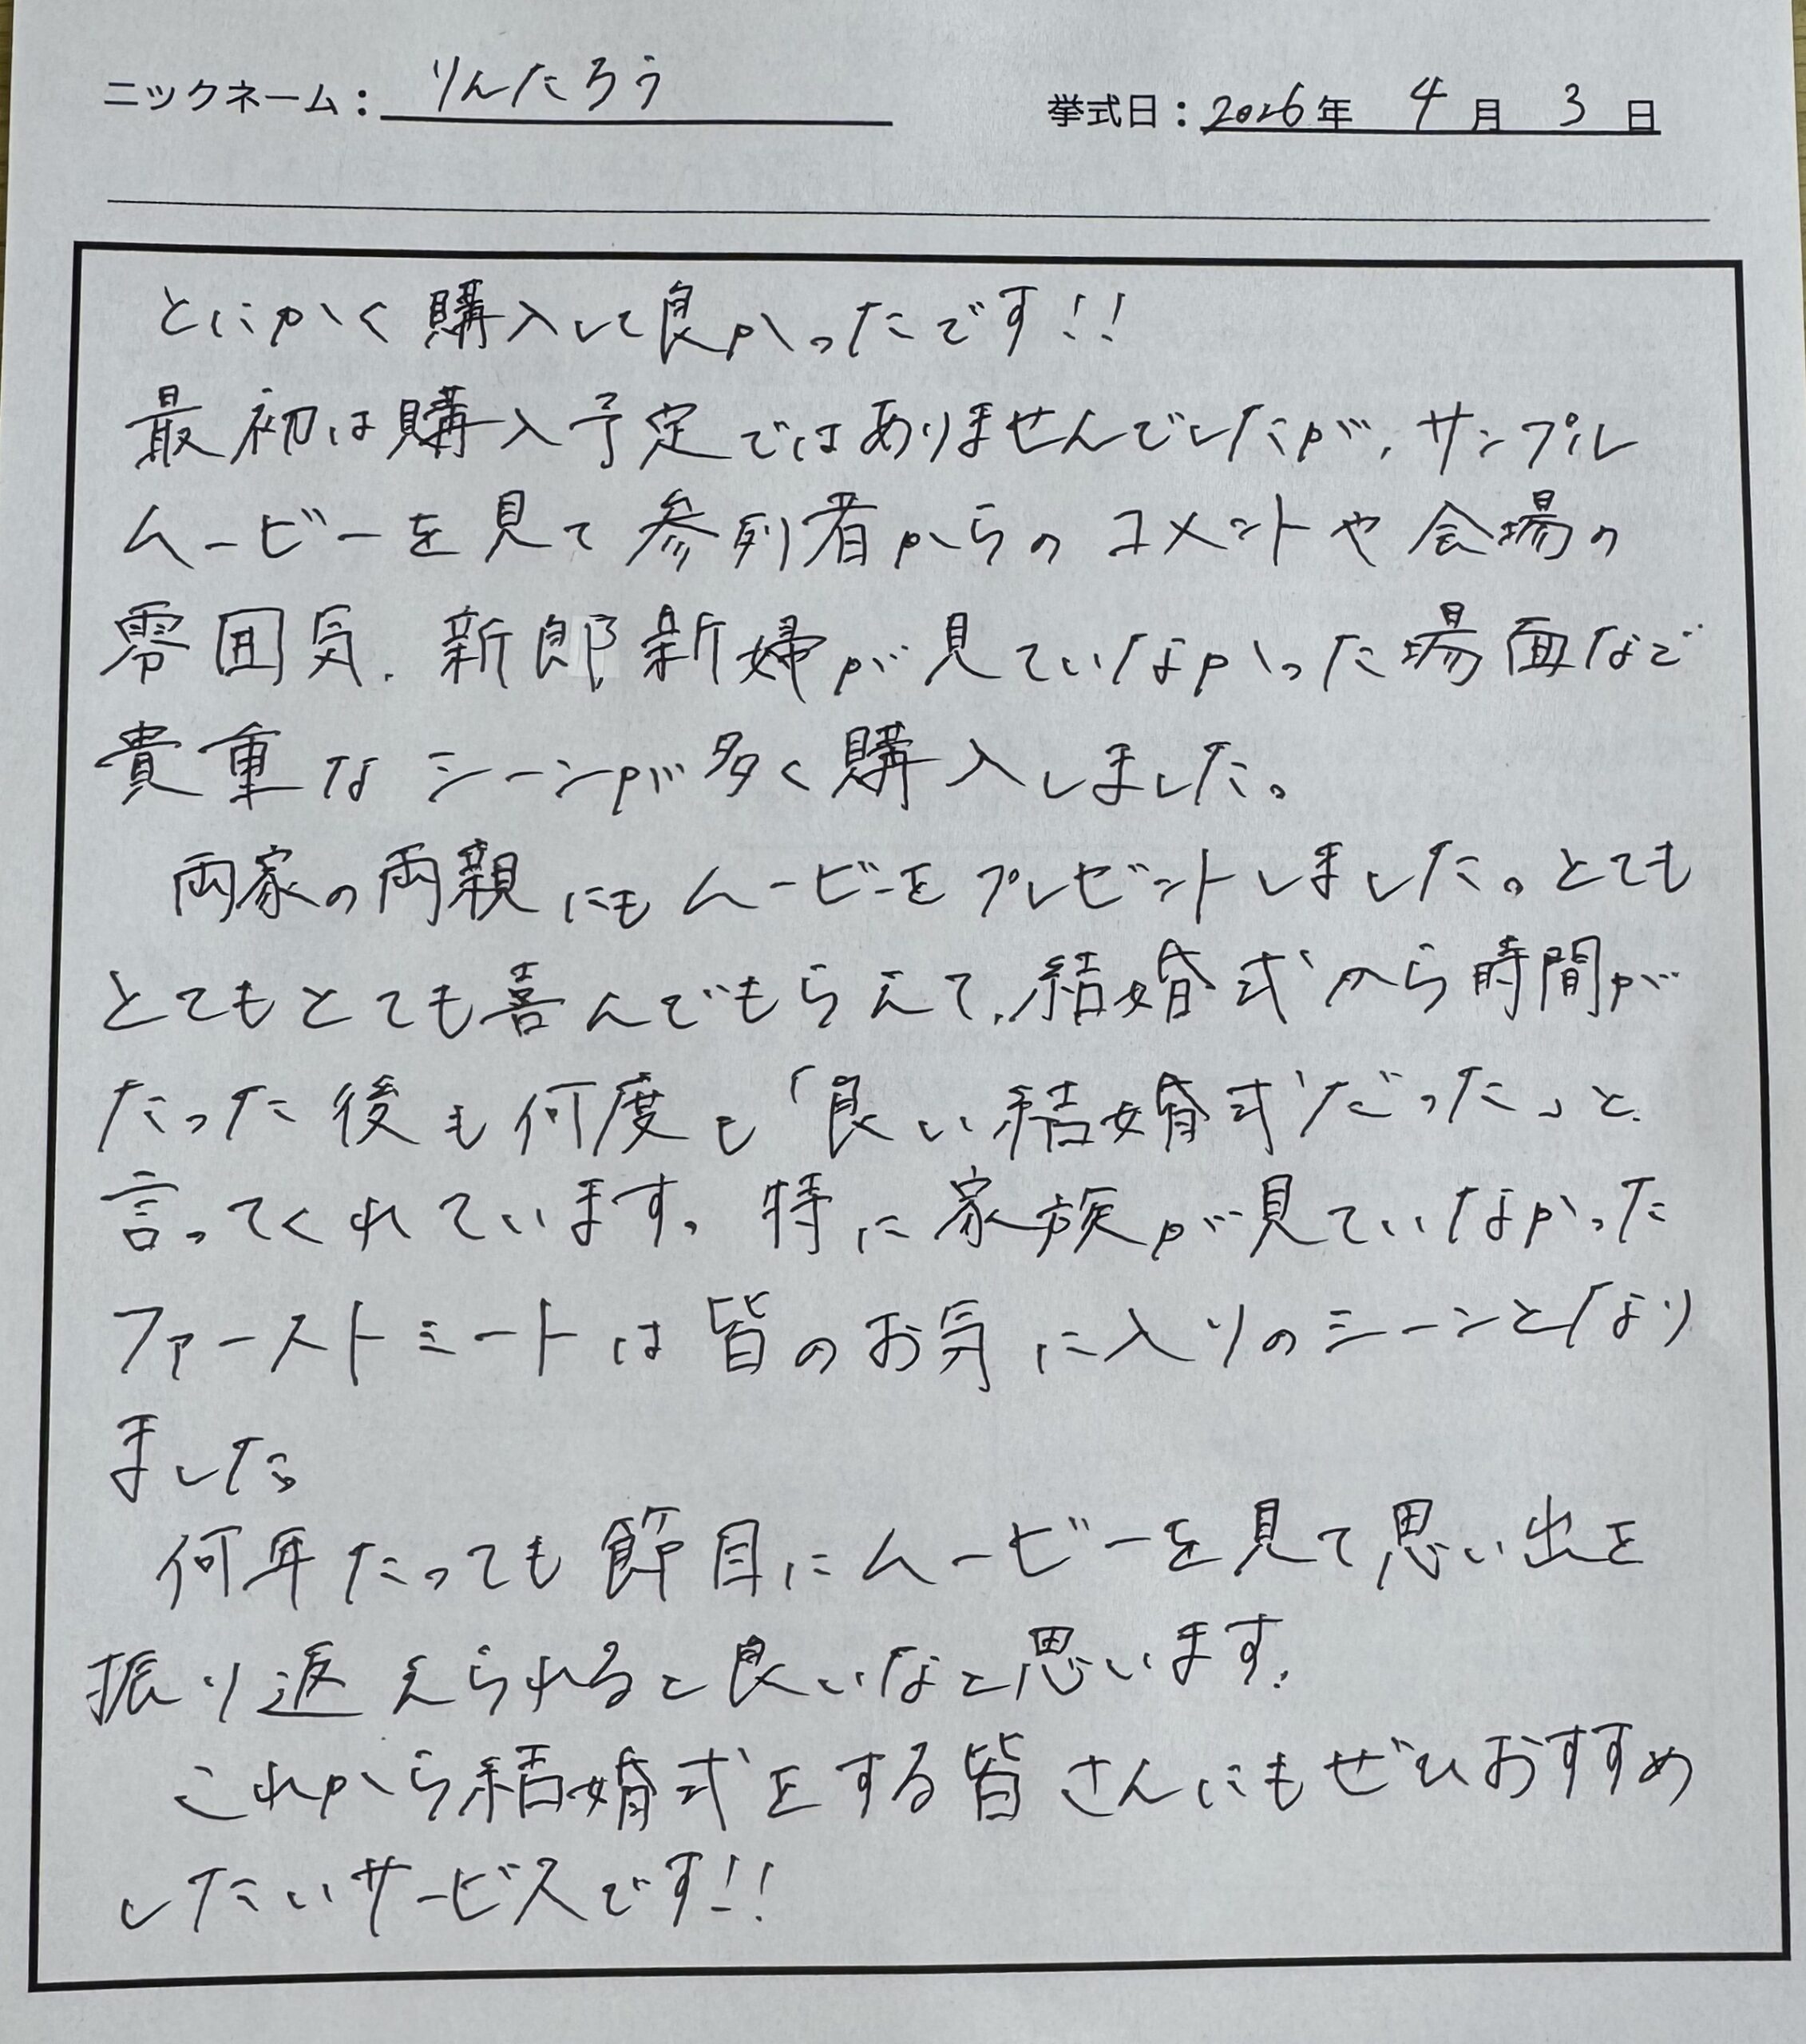 ニックネーム：りんたろう 挙式日：2026年 4月 3日
とにかく購入して良かったです!!
最初は購入予定ではありませんでしたが、サンプル
ムービーを見て参列者からのコメントや会場の
雰囲気、新郎新婦が見ていなかった場面など
貴重なシーンが多く購入しました。
両家の両親にもムービーをプレゼントしました。とても
とてもとても喜んでもらえて、結婚式から時間が
たった後も何度も「良い結婚式だった」と
言ってくれています。特に家族が見ていなかった
ファーストミートは皆のお気に入りのシーンとなり
ました。
何年たっても節目にムービーを見て思い出を
振り返えられると良いなと思います。
これから結婚式をする皆さんにもぜひおすすめ
したいサービスです!!